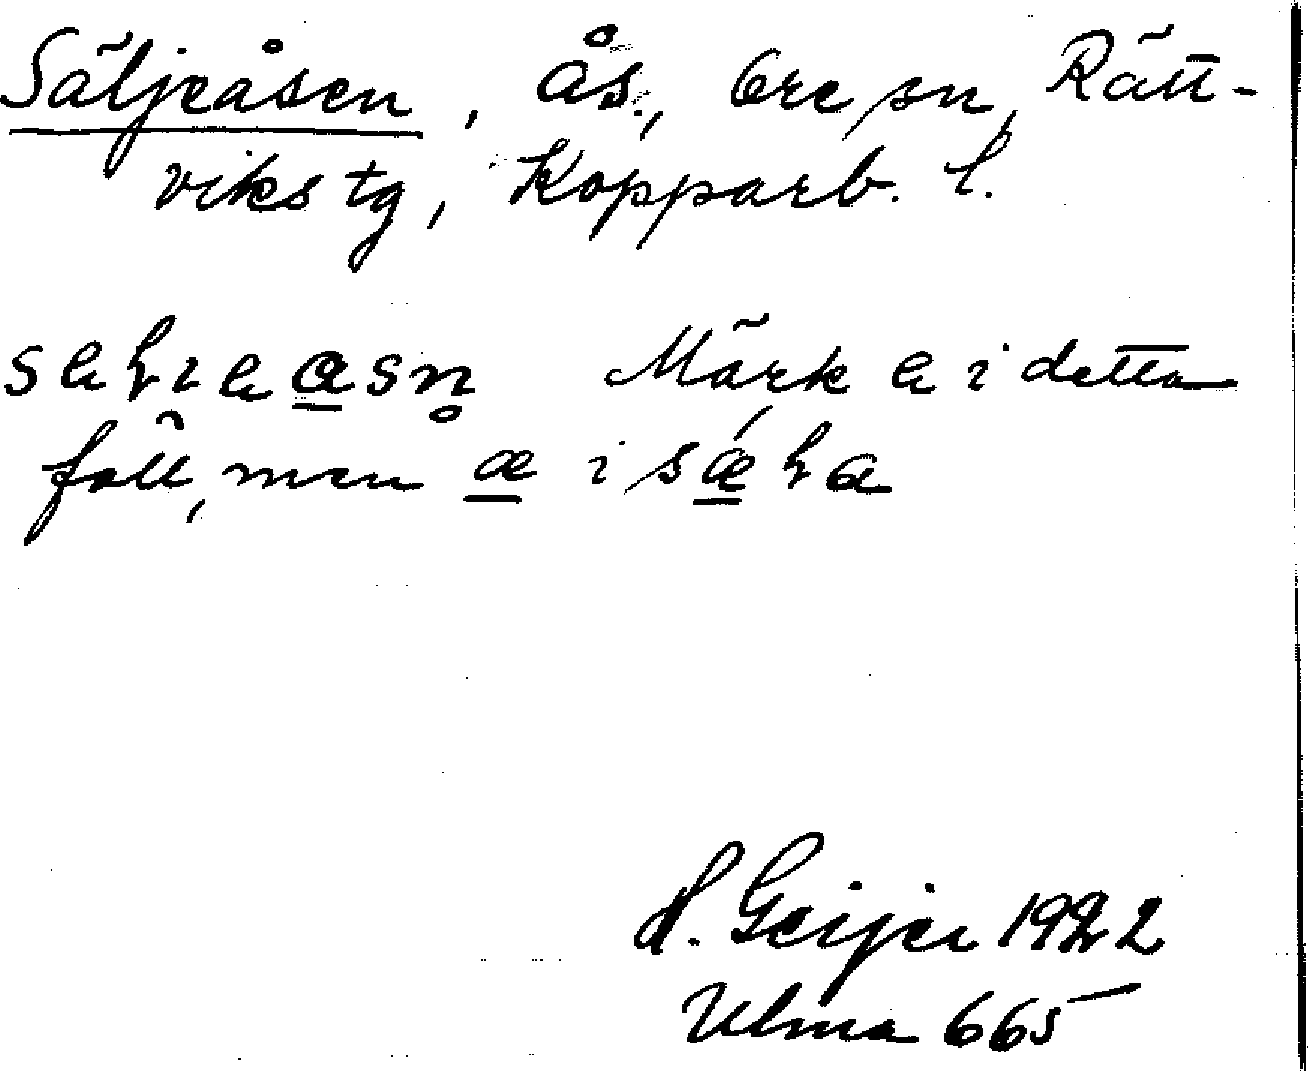 Säljeåsen, ås, Ore sn, Rätt-
viks tg, Kopparb. l.
Märk i detta
fall, men æ i
H. Geijer 1922
Ulma 665